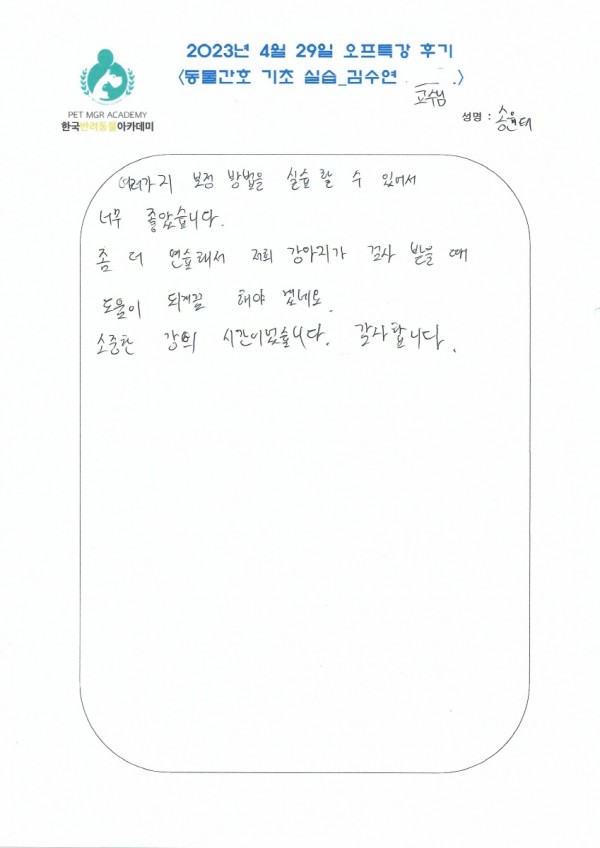 2023년 4월 29일 오프특강 후기
<동물간호 기초 실습_김수연 .>
교수님
PET MGR ACADEMY
한국반려동물아카데미
성명 : 송윤태
여러가지 보정 방법을 실습 할 수 있어서
너무 좋았습니다.
좀 더 연습해서 저희 강아지가 검사 받을 때
도움이 되게끔 해야 겠네요.
소중한 강의 시간이었습니다. 감사합니다.